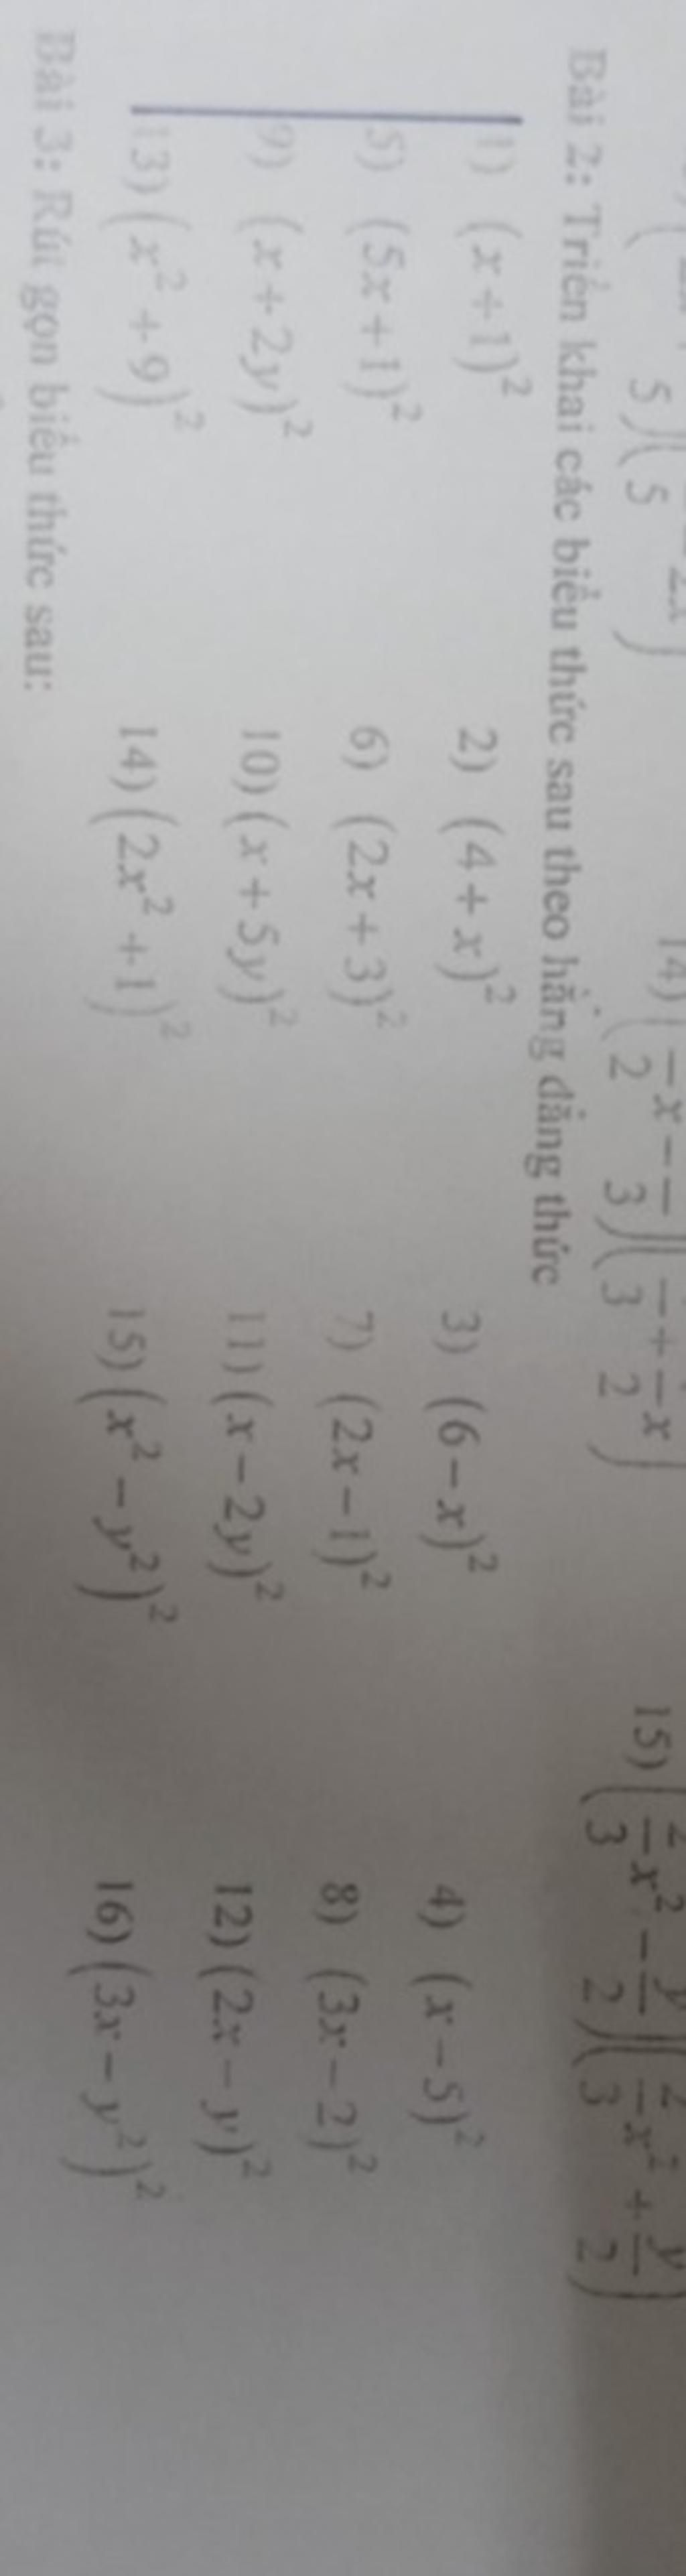 14) 15)
Bài 2: Triển khai các biểu thức sau theo hằng đẳng thức
1) (x+1)² 2) (4+x)² 3) (6−x)² 4) (x−5)²
5) (5x+1)² 6) (2x+3)² 7) (2x−1)² 8) (3x−2)²
9) (x+2y)² 10) (x+5y)² 11) (x−2y)² 12) (2x−y)²
13) (x²+9)² 14) (2x²+1)² 15) (x²−y²)² 16) (3x−y²)²
Bài 3: Rút gọn biểu thức sau: